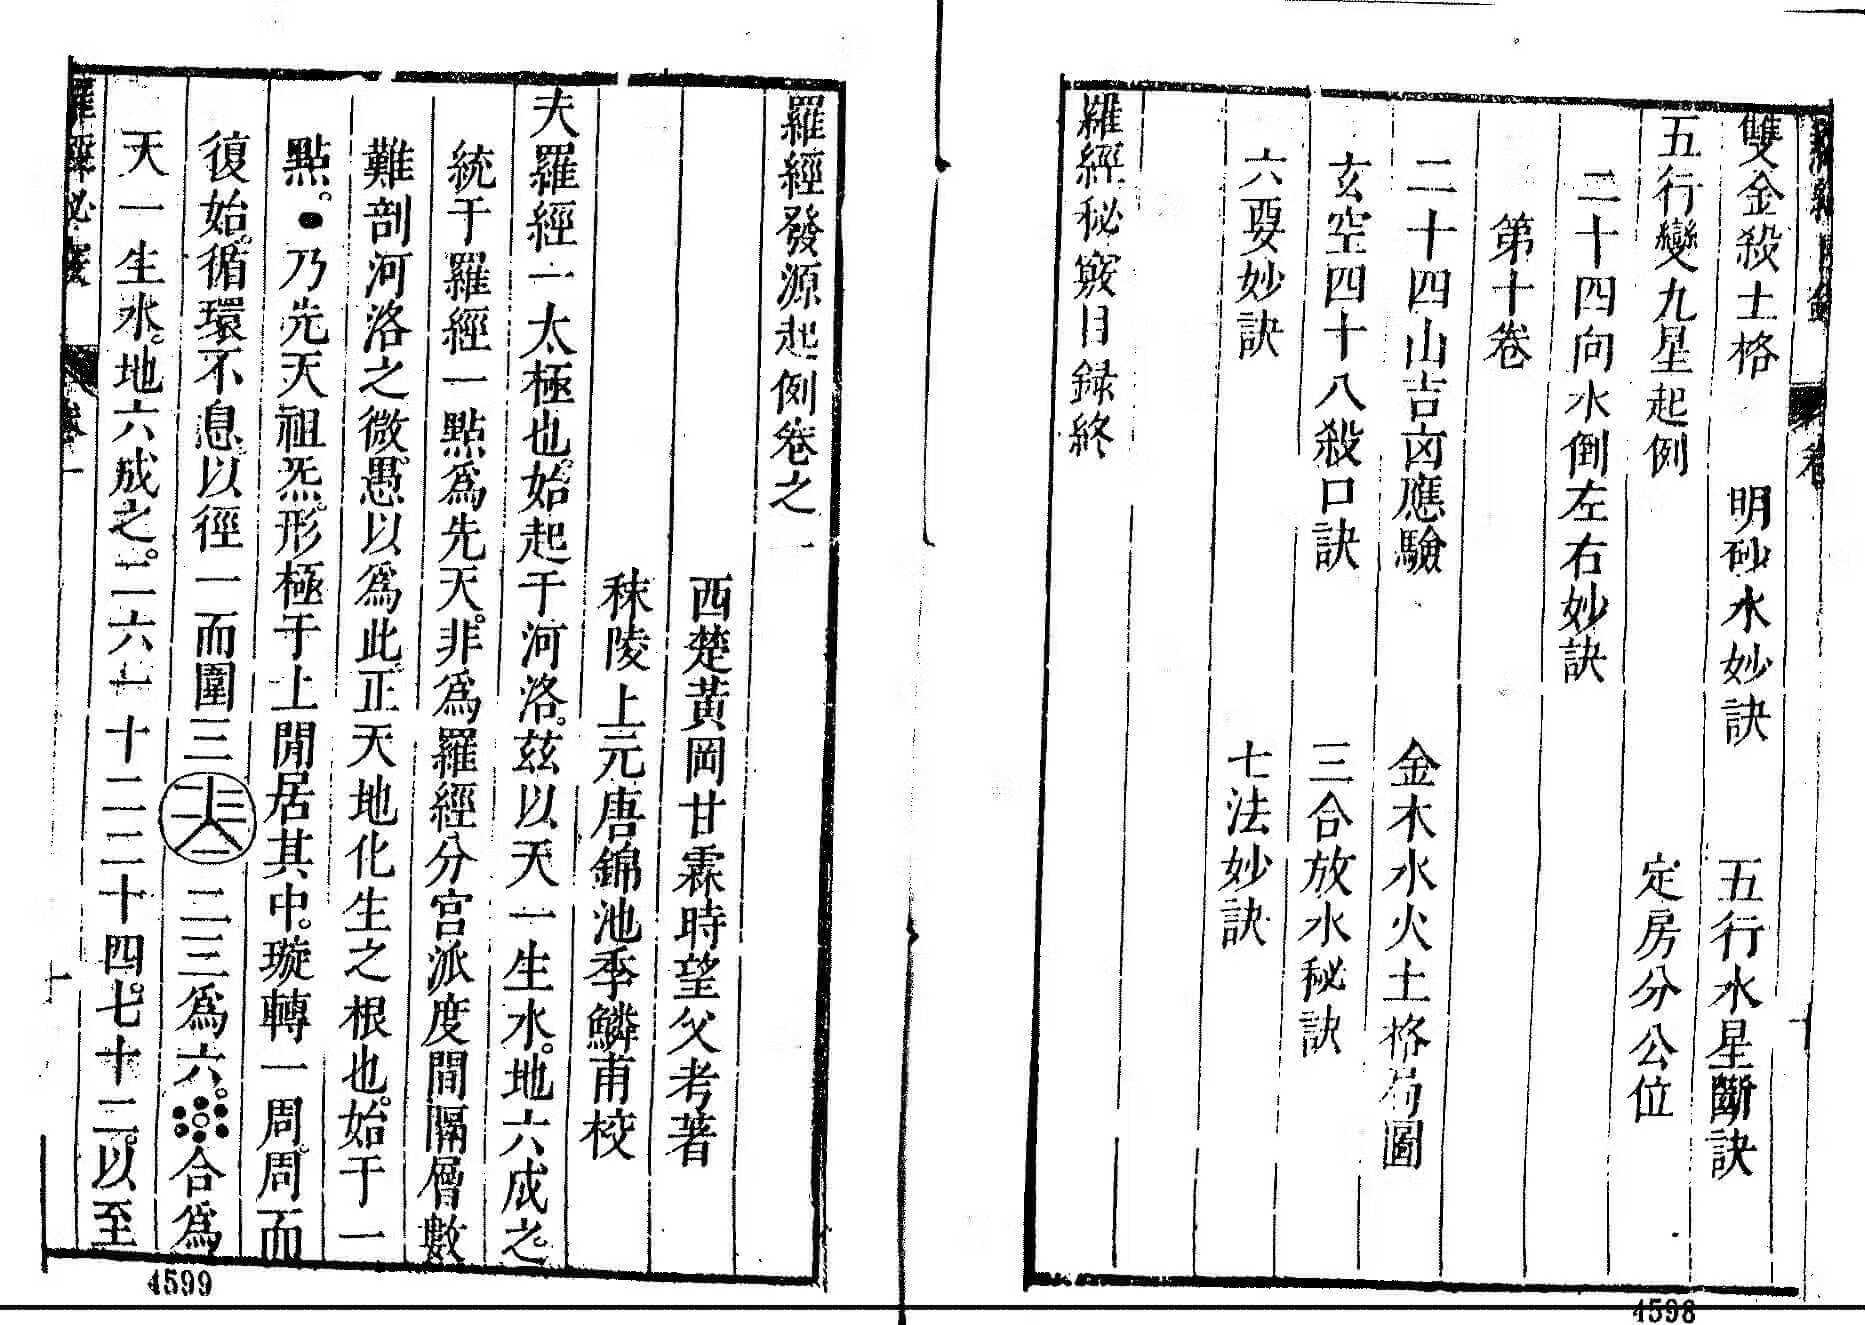 雙金殺土格　明砂水妙訣　五行水星斷訣
五行變九星起例　定房分公位
二十四向水倒左右妙訣
第十卷
二十四山吉凶應驗　金木水火土格局圖
玄空四十八殺口訣　三合放水秘訣
六要妙訣　七法妙訣
羅經秘竅目録終
4598
羅經發源起例卷之一
西楚黃岡甘霖時望父考著
秣陵上元唐錦池季鱗甫校
夫羅經一太極也。始起于河洛。茲以天一生水。地六成之。
統于羅經一點爲先天。非爲羅經分宮派度間隔層數
難剖河洛之微。愚以爲此。正天地化生之根也。始于一
點。●乃先天祖炁。形極于上閒居其中。璇轉一周。周而
復始。循環不息。以徑一而圍三　二三爲六。　合爲
天一生水。地六成之。二六一十二二二十四。七十二。以至
卷一
4599